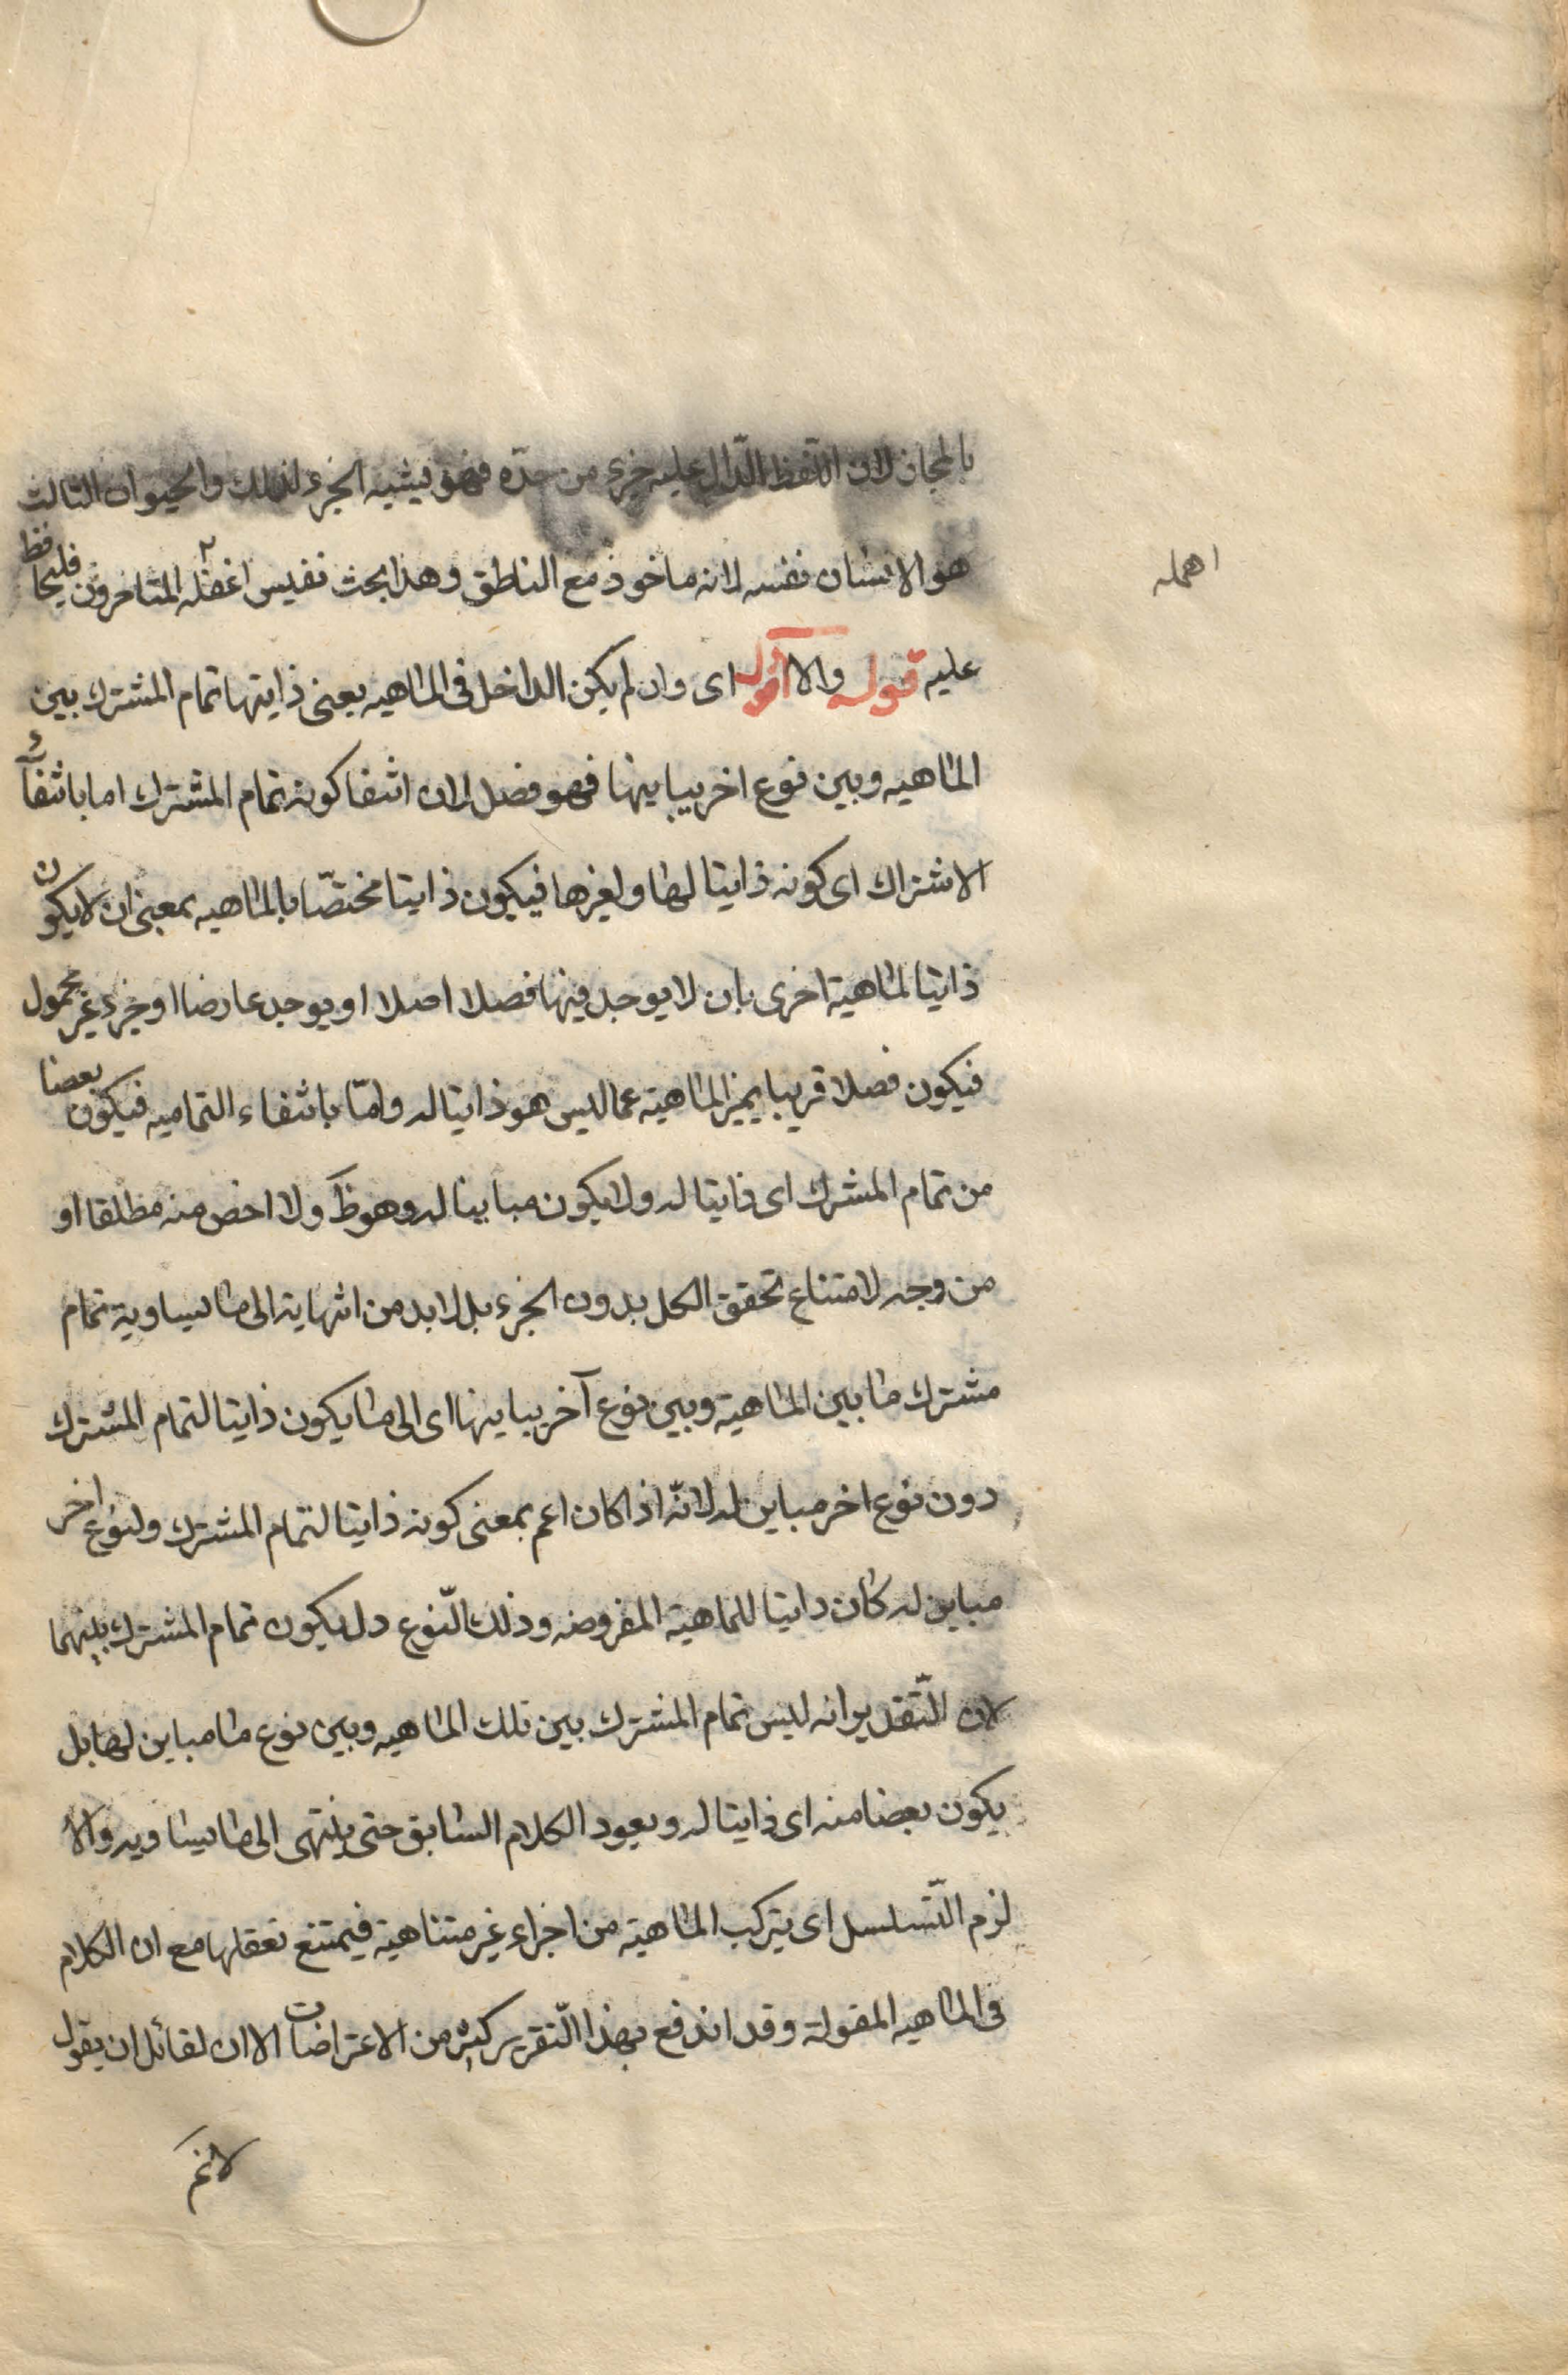 بالمجاز لان اللفظ الدّال عليه جزء من حدّه فهو يشبه الجزء لذلك والحيوان الثالث
هو الانسان نفسه لانه ماخوذ مع الناطق وهذا بحث نفيس اغفله المتاخرون فليحافظ
اهمله
عليه قوله والا اقول اى وان لم يكن الداخل فى الماهيه يعنى ذايتها تمام المشترك بين
الماهيه وبين نوع اخر يباينها فهو فصل لان انتفا كونه تمام المشترك اما بانتفاء
الاشتراك اى كونه ذاتيا لها ولغيرها فيكون ذاتيا مختصّا بالماهيه بمعنى ان لا يكون
ذاتيا لماهية اخرى بان لا يوجد فيها فصلا اصلا او يوجد عارضا او جزء غير محمول
فيكون فصلا قريبا يميز الماهية عما ليس هو ذاتيا له وامّا بانتفاء التماميه فيكون بعضا
من تمام المشترك اى ذاتيا له ولا يكون مباينا له وهو ظ ولا اخص منه مطلقا او
من وجه لامتناع تحقق الكل بدون الجزء بل لا بد من انتهايه الى ما يساويه تمام
مشترك ما بين الماهية وبين نوع آخر يباينها اى الى ما يكون ذاتيا لتمام المشترك
دون نوع اخر مباين له لانّه اذا كان اعم بمعنى كونه ذاتيا لتمام المشترك ولنوع اخر
مباين له كان ذاتيا للماهية المفروضه وذلك النّوع ولا يكون تمام المشترك بينهما
لان التّقدير انه ليس تمام المشترك بين تلك الماهيه وبين نوع ما مباين لها بل
يكون بعضا منه اى ذاتيا له ويعود الكلام السابق حتى ينتهى الى ما يساويه والا
لزم التّسلسل اى يتركب الماهية من اجزاء غير متناهية فيمتنع تعقلها مع ان الكلام
فى الماهيه المقولة وقد اندفع بهذا التّقرير كثير من الاعتراضات الا ان لقائل ان يقول
لا نم